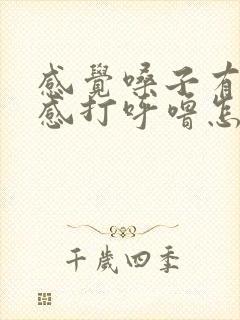 感覺嗓子有
感打呼嚕怎
千歲四季